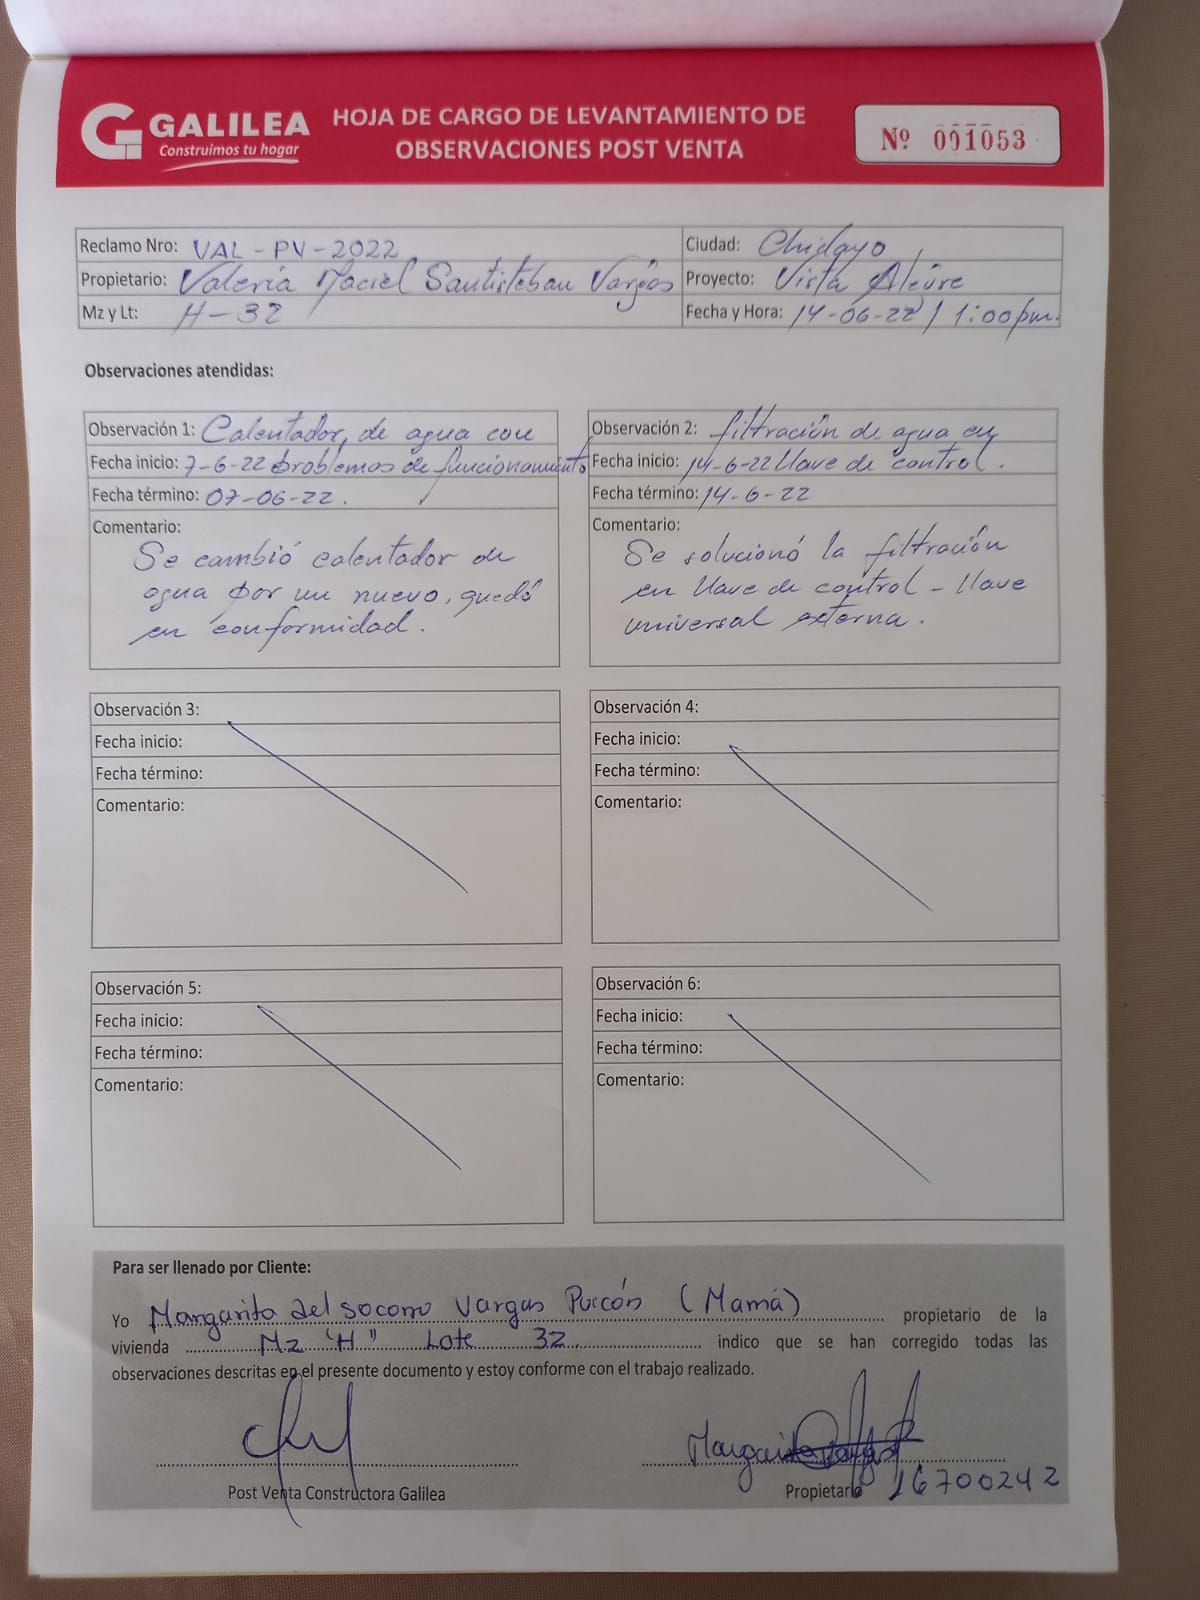 GALILEA
Construimos tu hogar
HOJA DE CARGO DE LEVANTAMIENTO DE
OBSERVACIONES POST VENTA
Nº 001053
Reclamo Nro: VAL-PV-2022
Ciudad: Chiclayo
Propietario: Valeria Maciel Santisteban Vargas
Proyecto: Vista Alegre
Mz y Lt: H-32
Fecha y Hora: 14-06-22 / 1:00pm.
Observaciones atendidas:
Observación 1: Calentador de agua con
Fecha inicio: 7-6-22 problemas de funcionamiento
Fecha término: 07-06-22.
Comentario:
Se cambió calentador de
agua por un nuevo, quedó
en conformidad.
Observación 2: filtración de agua en
Fecha inicio: 14-6-22 llave de control.
Fecha término: 14-6-22
Comentario:
Se solucionó la filtración
en llave de control - llave
universal externa.
Observación 3:
Fecha inicio:
Fecha término:
Comentario:
Observación 4:
Fecha inicio:
Fecha término:
Comentario:
Observación 5:
Fecha inicio:
Fecha término:
Comentario:
Observación 6:
Fecha inicio:
Fecha término:
Comentario:
Para ser llenado por Cliente:
Yo Margarita del Socorro Vargas Puicón (Mamá) propietario de la
vivienda Mz "H" Lote 32 indico que se han corregido todas las
observaciones descritas en el presente documento y estoy conforme con el trabajo realizado.
Margarita
Post Venta Constructora Galilea
Propietario 16700242